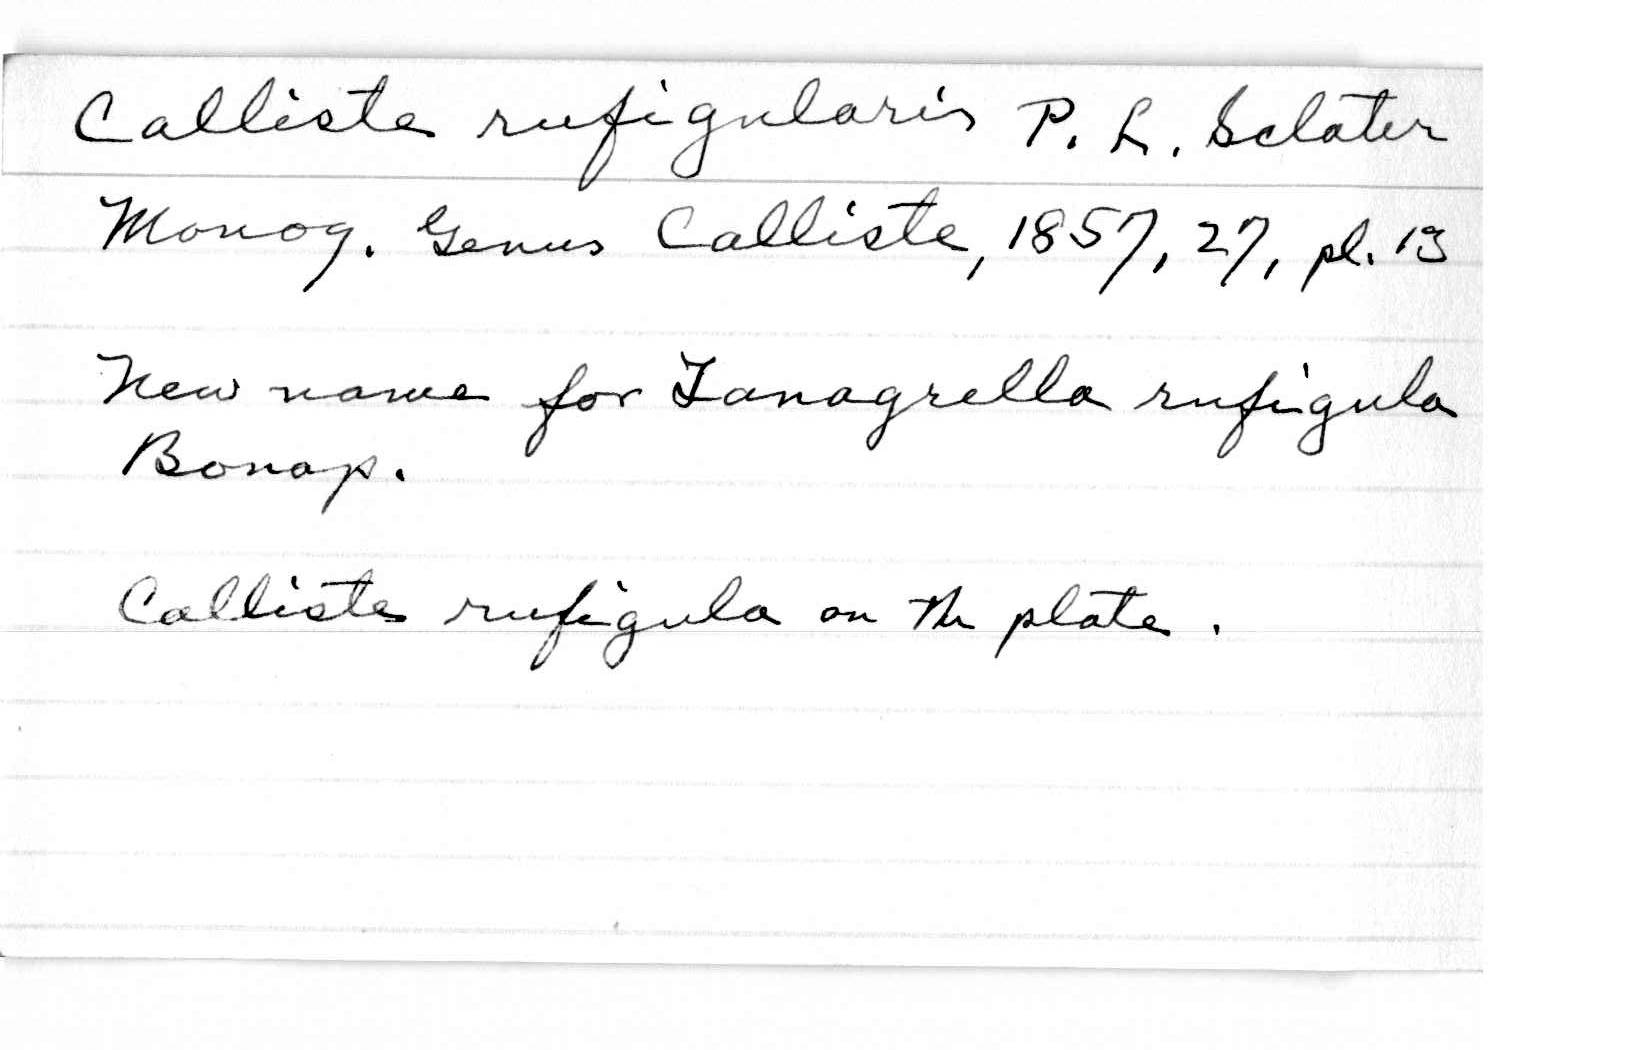 Calliste rufigularis P. L. Sclater
Monog. Genus Calliste, 1857, 27, pl. 13
New name for Tanagrella rufigula
Bonap.
Calliste rufigula on the plate.